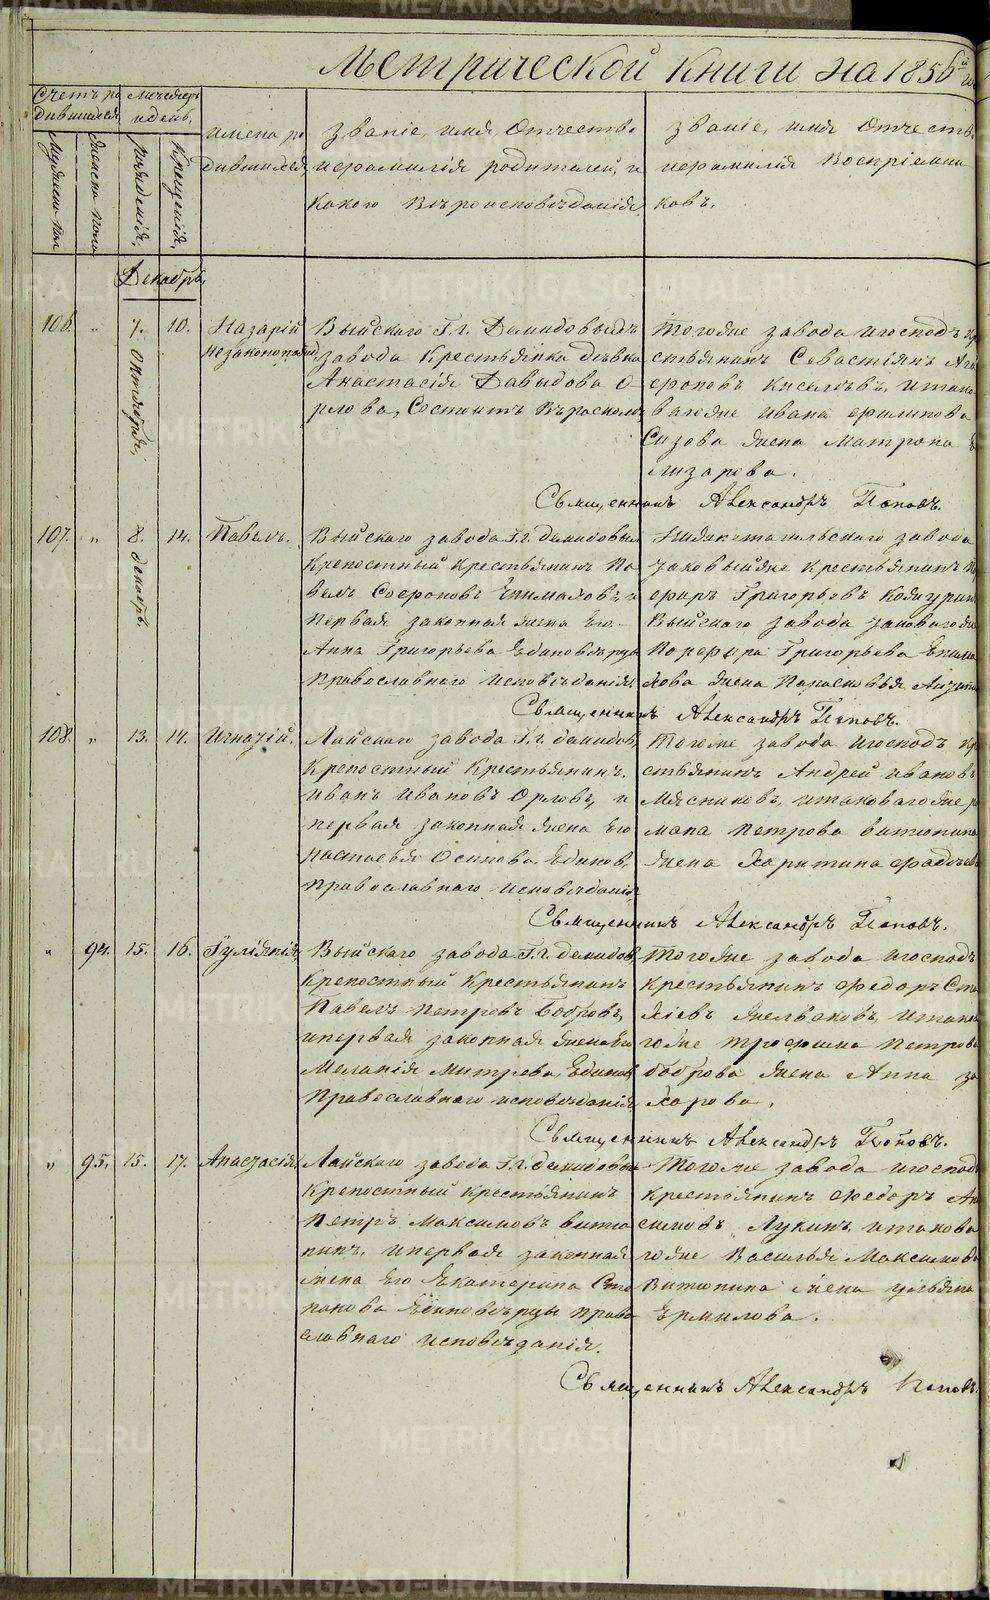 Метрической книги на 1856й
Счетъ ро
дившихся
Мужеска пол
Женска пола
месяцъ
и день,
рожденія,
Крещенія,
имена ро
дившихся
Званіе, имя Отчество
и фамилія родителей, и
какого Вѣроисповѣданія
Званіе, имя Отчеств.
и фамилія Воспріемни
ковъ.
Декабрь,
106. „ 7. Октября, 10. Назарій
незаконорожд
Выйскаго Г.г. Демидовыхъ
завода Крестьянка дѣвка
Анастасія Давыдова О-
рлова, Состоитъ въ раскол
Тогоже завода и господъ кр
стьянинъ Севастіянъ Ага
фоновъ Киселѣвъ, и тако
вагоже Ивана Филипова
Сизова жена Матрона Е
лизарова.
Священникъ Александръ Поповъ.
107. „ 8. декабрь. 14. Павелъ.
Выйскаго завода Г.г. Демидовых
Крепостный Крестьянинъ Па
велъ Софроновъ Епимаховъ, и
первая законная жена Его
Анна Григорьева Единовѣрцы
Православнаго исповѣданія
Нижнетагильскаго завода
таковыйже Крестьянинъ
Григорьевъ Кожурин
Выйскаго завода таковагоже
Порфира Григорьева Епима
хова жена Парасковья
Священникъ Александръ Поповъ.
108. „ 13. 14. Игнатій.
Лайскаго завода Г.г. Демидов
Крепостный Крестьянинъ
Иванъ Ивановъ Орловъ, и
первая законная жена Его
Настасья Осипова Единов,
Православнаго исповѣданія
Тогоже завода и господъ кр
стьянинъ Андрей Ивановъ
Мясниковъ, и таковагоже р
мана Петрова Витюнина
жена Харитина Фадѣев
Священникъ Александръ Поповъ.
„ 94. 15. 16. Іуліянія
Выйскаго завода Г.г. Демидов
Крепостный Крестьянинъ
Павелъ Петровъ Бобровъ,
и первая законная жена Ег
Меланія Митрева, Единов
Православнаго исповѣданія
Тогоже завода и господъ
Крестьянинъ Федоръ Ста
хіевъ Желваковъ, и таков
гоже Трофима Петрова
Боброва жена Анна За
харова.
Священникъ Александръ Поповъ.
„ 95. 15. 17. Анастасія
Лайскаго завода Г.г. Демидовы
Крепостный Крестьянинъ
Петръ Максимовъ Витю
нинъ, и первая законная
жена Его Екатерина Сте
панова Единовѣрцы право
славнаго исповѣданія.
Тогоже завода и господ
Крестьянинъ Федоръ Ан
симовъ Лукинъ, и такова
гоже Василья Максимова
Витюнина жена Ульяна
Ермилова.
Священникъ Александръ Поповъ.